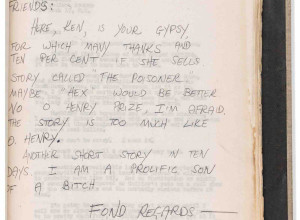 FRIENDS:
HERE, KEN, IS YOUR GYPSY,
FOR WHICH MANY THANKS AND
TEN PER CENT IF SHE SELLS
STORY CALLED THE POISONER
MAYBE "HEX" WOULD BE BETTER
NO O HENRY PRIZE, I'M AFRAID.
THE STORY IS TOO MUCH LIKE
O. HENRY.
ANOTHER SHORT STORY IN TEN
DAYS. I AM A PROLIFIC SON
OF A BITCH.
FOND REGARDS —